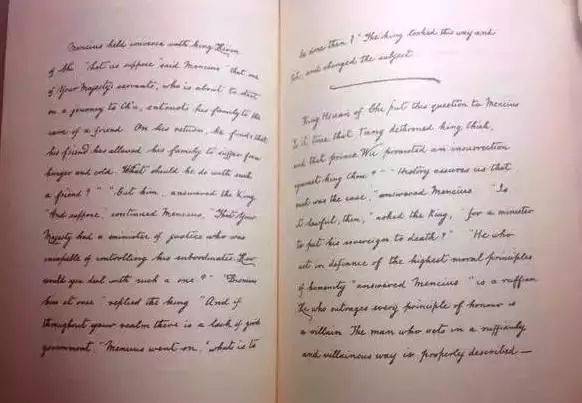 Mencius held converse with king Hsüan
of Chi "Let us suppose" said Mencius "that one
of Your Majesty's servants, who is about to start
on a journey to Ch'u, entrusts his family to the
care of a friend. On his return, he finds that
his friend has allowed his family to suffer from
hunger and cold. What should he do with such
a friend?" "Cut him, answered the King
"And suppose," continued Mencius, "That Your
Majesty had a minister of justice who was
incapable of controlling his subordinates. How
would you deal with such a one?" "Dismiss
him at once" replied the king "And if
throughout your realm there is a lack of good
government." Mencius went on, "what is to
be done then?" The king looked this way and
that, and changed the subject
King Hsüan of Chi put this question to Mencius
Is it true that T'ang dethroned king Chieh,
and that prince Wu promoted an insurrection
against king Chou?" "History assures us that
such was the case," answered Mencius "Is
it lawful, then," asked the King, "for a minister
to put his sovereign to death?" "He who
acts in defiance of the highest moral principles
of humanity" answered Mencius "is a ruffian
He who outrages every principle of honour is
a villain The man who acts in a ruffianly
and villainous way is properly described—